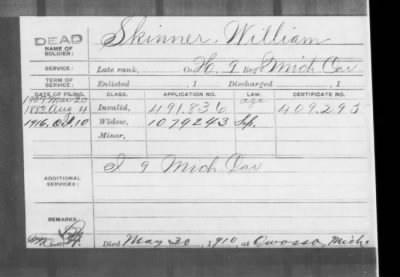 DEAD
NAME OF SOLDIER: Skinner, William
SERVICE: Late rank, Co. H, 9 Reg't Mich Cav
TERM OF SERVICE: Enlisted , 1 Discharged , 1
DATE OF FILING. CLASS. APPLICATION NO. LAW. CERTIFICATE NO.
1907 Mar 20 age
1883 Aug 4 Invalid, 491.836 409.295
1916, Oct, 10 Widow, 1079243 Sp.
Minor,
ADDITIONAL SERVICES: I 9 Mich Cav
REMARKS:
Died May 30, 1910, at Owosso, Mich.